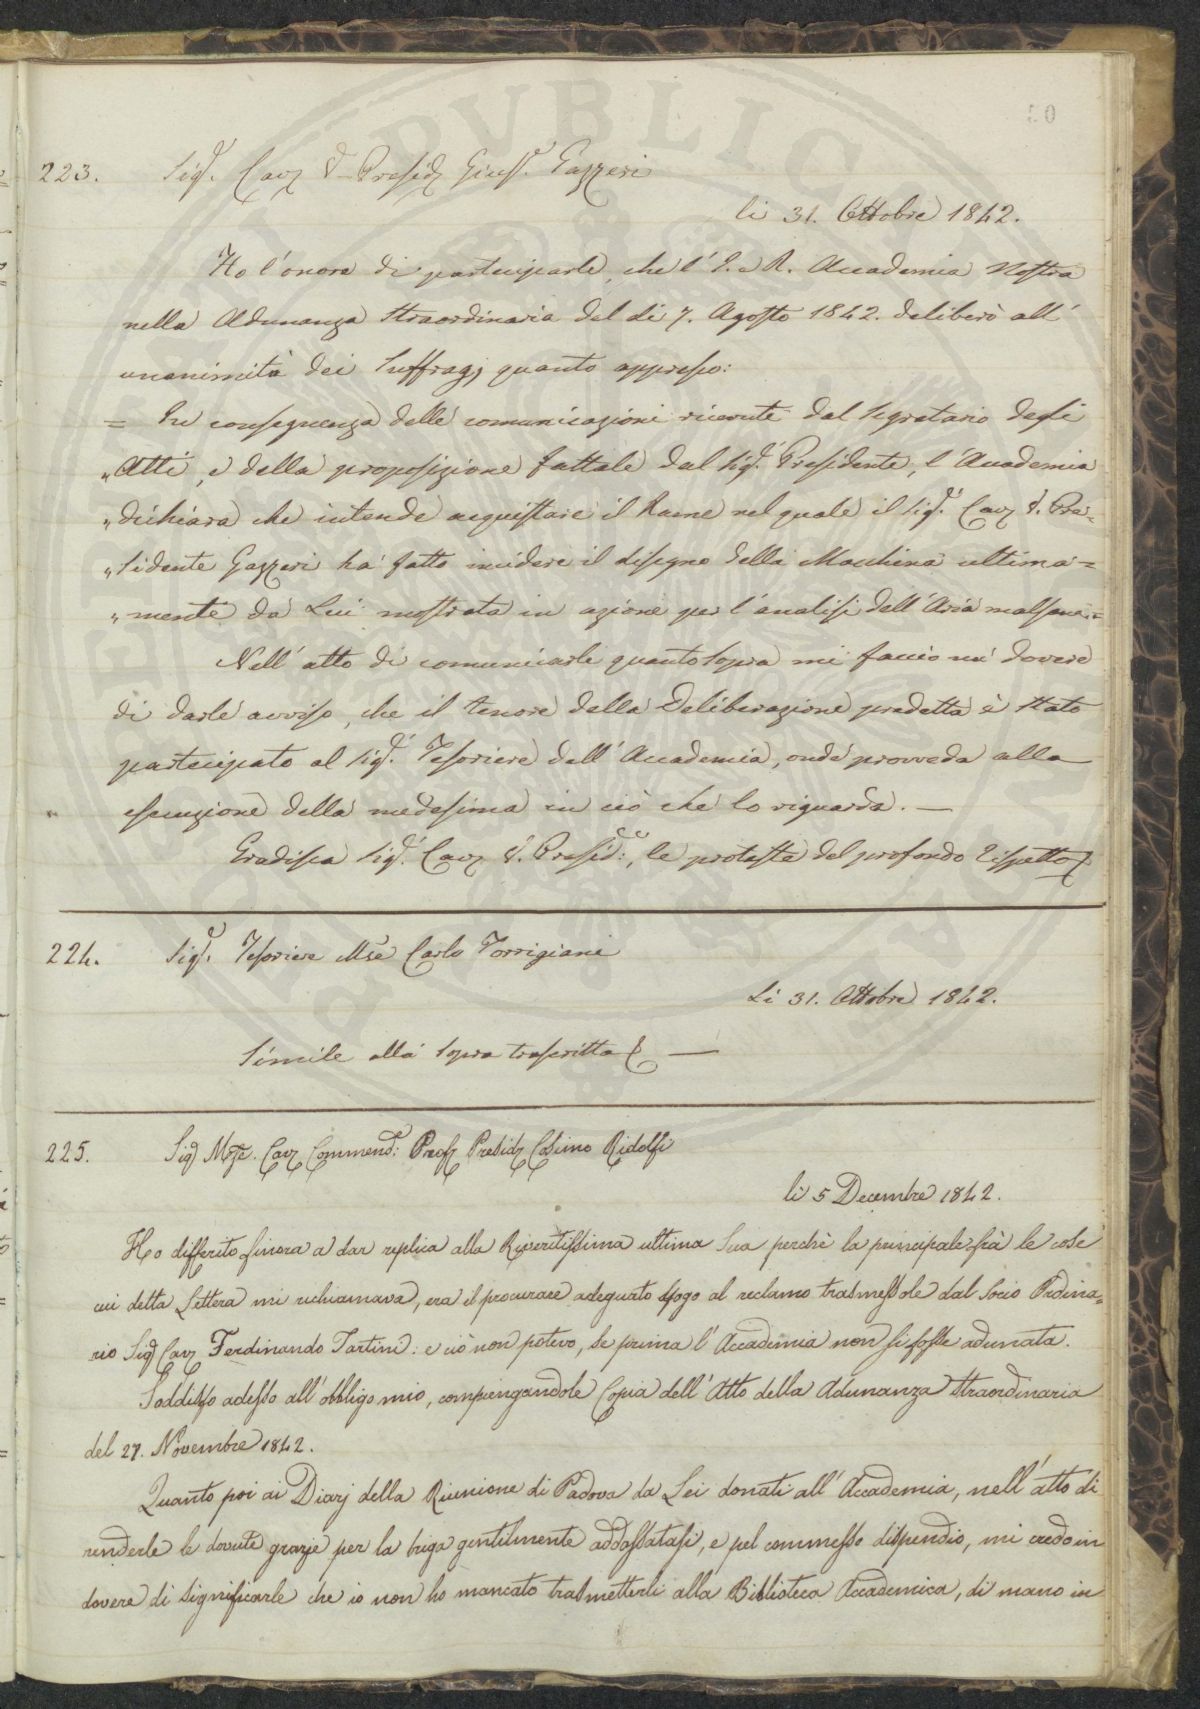 223. Sig.r Cav.r V. Presid.e Gius.e Gazzeri
li 31. Ottobre 1842.
Ho l'onore di parteciparle, che l'I. e R. Accademia Nostra
nella Adunanza Straordinaria del dì 7. Agosto 1842. deliberò all'
unanimità dei Suffragj quanto appresso:
= In conseguenza delle comunicazioni ricevute dal Segretario degli
„ Atti, e della proposizione fattale dal Sig.r Presidente, l'Accademia
„ dichiara che intende acquistare il Rame nel quale il Sig.r Cav.r V. Pre=
„ sidente Gazzeri ha fatto incidere il disegno della Macchina ultima=
„ mente da Lui mostrata in azione per l'analisi dell'Aria malsana.=
Nell'atto di comunicarle quanto sopra mi faccio un dovere
di darle avviso, che il tenore della Deliberazione predetta è stato
partecipato al Sig.r Tesoriere dell'Accademia, onde provveda alla
esecuzione della medesima in ciò che lo riguarda. —
Gradisca Sig.r Cav.r V. Presid.e, le proteste del profondo rispetto
224. Sig.r Tesoriere Mse Carlo Torrigiani
Li 31. Ottobre 1842.
Simile alla sopra trascritta &. —
225. Sig.r M.se Cav.r Commend.e Prof.r Presid.e Cosimo Ridolfi
li 5 Decembre 1842.
Ho differito finora a dar replica alla Riveritissima ultima Sua perchè la principale frà le cose
cui detta Lettera mi richiamava, era il procurare adeguato sfogo al reclamo trasmessole dal Socio Ordina=
rio Sig.r Cav.r Ferdinando Tartini: e ciò non potevo, se prima l'Accademia non si fosse adunata.
Soddisfo adesso all'obbligo mio, compiegandole Copia dell'Atto della Adunanza Straordinaria
del 27. Novembre 1842.
Quanto poi ai Diarj della Riunione di Padova da Lei donati all'Accademia, nell'atto di
renderle le dovute grazie per la briga gentilmente addossatasi, e pel commesso dispendio, mi credo in
dovere di significarle che io non ho mancato trasmetterli alla Biblioteca Accademica, di mano in